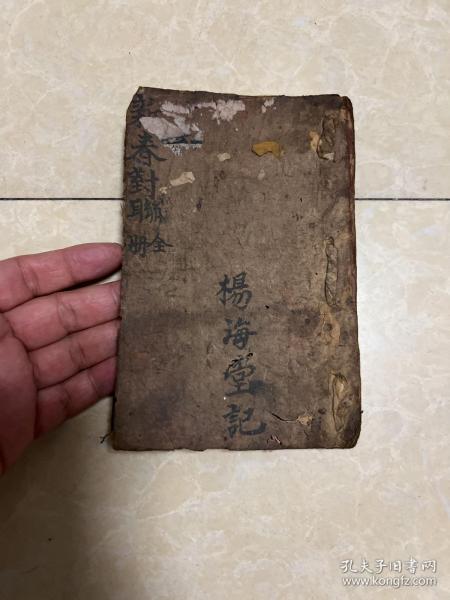 春對聯
全冊
楊海堂記
孔夫子旧书网
www.kongfz.com